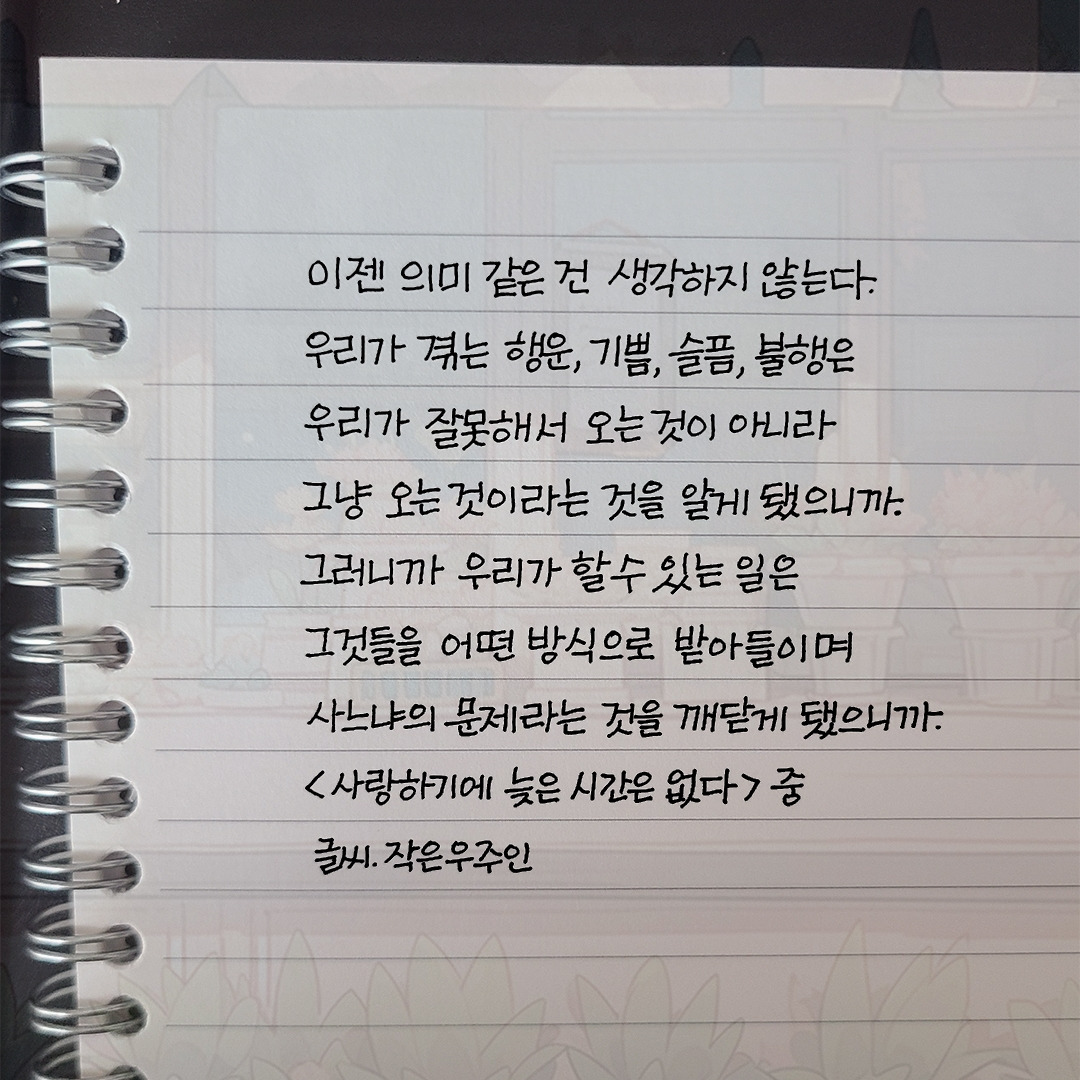 이젠 의미 같은 건 생각하지 않는다.
우리가 겪는 행운, 기쁨, 슬픔, 불행은
우리가 잘못해서 오는 것이 아니라
그냥 오는 것이라는 것을 알게 됐으니까.
그러니까 우리가 할 수 있는 일은
그것들을 어떤 방식으로 받아들이며
사느냐의 문제라는 것을 깨닫게 됐으니까.
<사랑하기에 늦은 시간은 없다> 중
글씨. 작은우주인